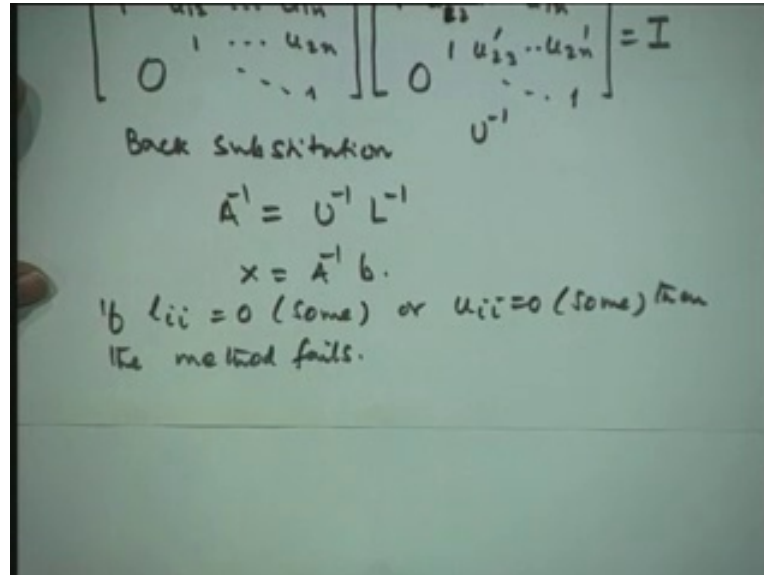 1 ... u2n 1 u'23 .. u'2n = I
0 ... 1 0 ... 1
U⁻¹
Back substitution
A⁻¹ = U⁻¹ L⁻¹
x = A⁻¹ b.
If lii = 0 (some) or uii = 0 (some) then
the method fails.